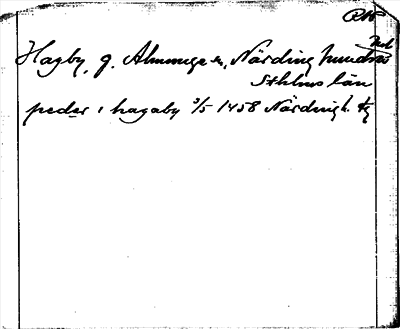 Hagby, g. Almunge sn, Närding hundra
Sthlms län
peder i hagaby 3/5 1458 Närdingh.